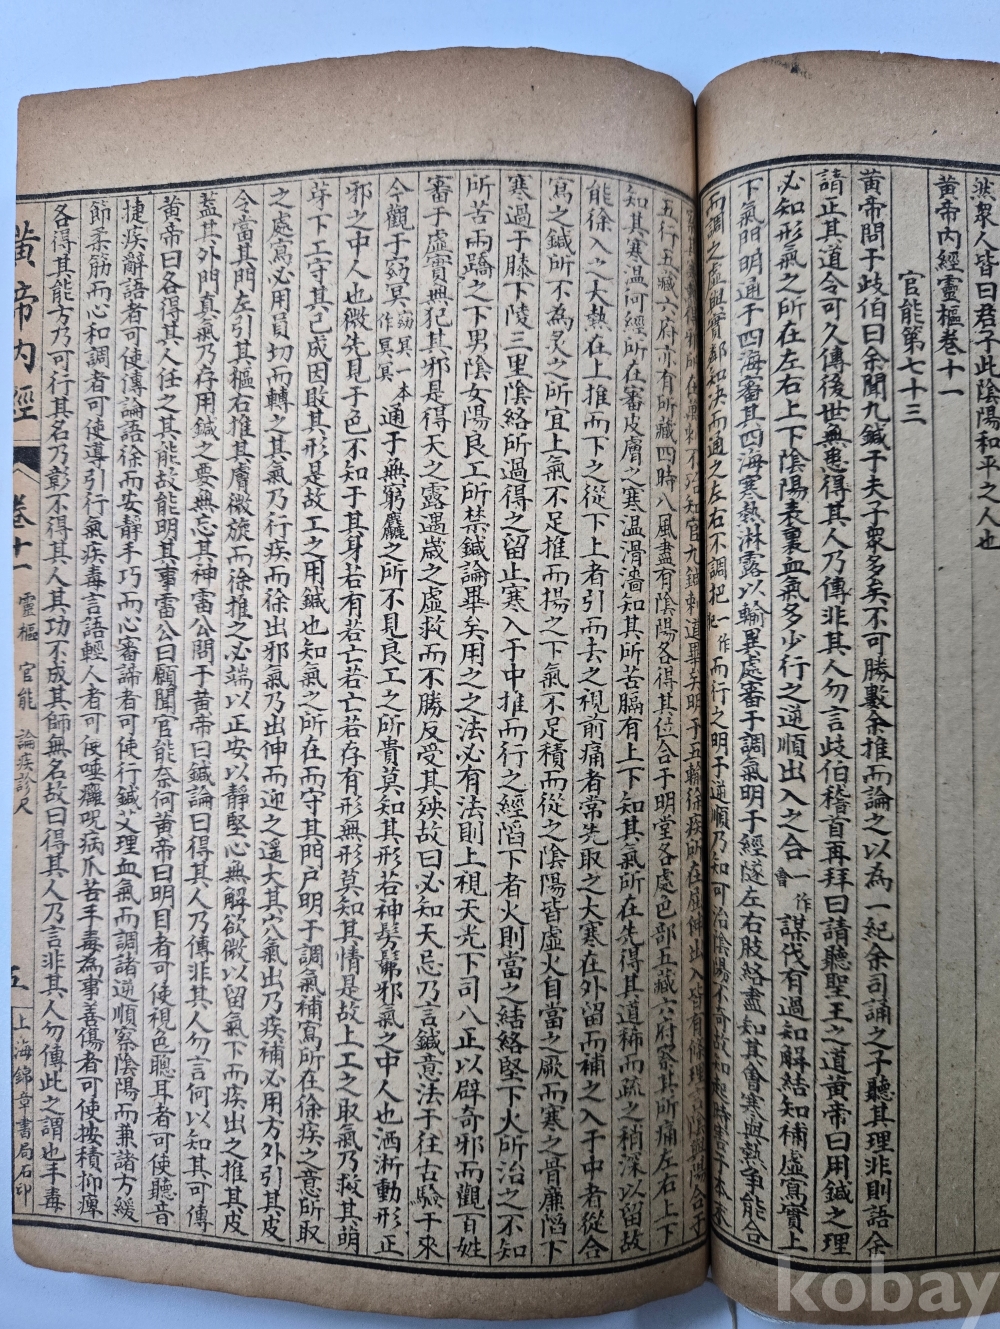 然眾人皆曰君子此陰陽和平之人也
黃帝內經靈樞卷十一
官能第七十三
黃帝問于歧伯曰余聞九鍼于夫子眾多矣不可勝數余推而論之以為一紀余司誦之子聽其理非則語余
請正其道令可久傳後世無患得其人乃傳非其人勿言歧伯稽首再拜曰請聽聖王之道黃帝曰用鍼之理
必知形氣之所在左右上下陰陽表裏血氣多少行之逆順出入之合一作會謀伐有過知解結知補虛瀉實上
下氣門明通于四海審其所在寒熱淋露以輸異處審于調氣明于經隧左右肢絡盡知其會寒與熱爭能合
而調之虛與實鄰知決而通之左右不調把一作犯而行之明于逆順乃知可治陰陽不奇故知起時審于本末
五行五藏六府亦有所藏四時八風盡有陰陽各得其位合于明堂各處色部五藏六府察其所痛左右上下
知其寒溫何經所在審皮膚之寒溫滑濇知其所苦膈有上下知其氣所在先得其道稀而疏之稍深以留故
能徐入之大熱在上推而下之從下上者引而去之視前痛者常先取之大寒在外留而補之入于中者從合
瀉之鍼所不為灸之所宜上氣不足推而揚之下氣不足積而從之陰陽皆虛火自當之厥而寒之骨廉陷下
寒過于膝下陵三里陰絡所過得之留止寒入于中推而行之經陷下者火則當之結絡堅下火所治之不知
所苦兩蹻之下男陰女陽良工所禁鍼論畢矣用之之法必有法則上視天光下司八正以辟奇邪而觀百姓
審于虛實無犯其邪是得天之露遇歲之虛救而不勝反受其殃故曰必知天忌乃言鍼意法于往古驗于來
今觀于窈冥窈冥一本作冥冥通于無窮麤之所不見良工之所貴莫知其形若神髣髴邪氣之中人也洒淅動形正
邪之中人也微先見于色不知于其身若有若亡若亡若存有形無形莫知其情是故上工之取氣乃救其萌
芽下工守其已成因敗其形是故工之用鍼也知氣之所在而守其門戶明于調氣補瀉所在徐疾之意所取
之處瀉必用員切而轉之其氣乃行疾而徐出邪氣乃出伸而迎之遙大其穴氣出乃疾補必用方外引其皮
令當其門左引其樞右推其膚微旋而徐推之必端以正安以靜堅心無解欲微以留氣下而疾出之推其皮
蓋其外門真氣乃存用鍼之要無忘其神雷公問于黃帝曰鍼論曰得其人乃傳非其人勿言何以知其可傳
黃帝曰各得其人任之其能故能明其事雷公曰願聞官能奈何黃帝曰明目者可使視色聰耳者可使聽音
捷疾辭語者可使傳論語徐而安靜手巧而心審諦者可使行鍼艾理血氣而調諸逆順察陰陽而兼諸方緩
節柔筋而心和調者可使導引行氣疾毒言語輕人者可使唾癰呪病爪苦手毒為事善傷者可使按積抑痺
各得其能方乃可行其名乃彰不得其人其功不成其師無名故曰得其人乃言非其人勿傳此之謂也手毒
黃帝內經 卷十一 靈樞 官能 論疾診尺 五 上海錦章書局石印
kobay